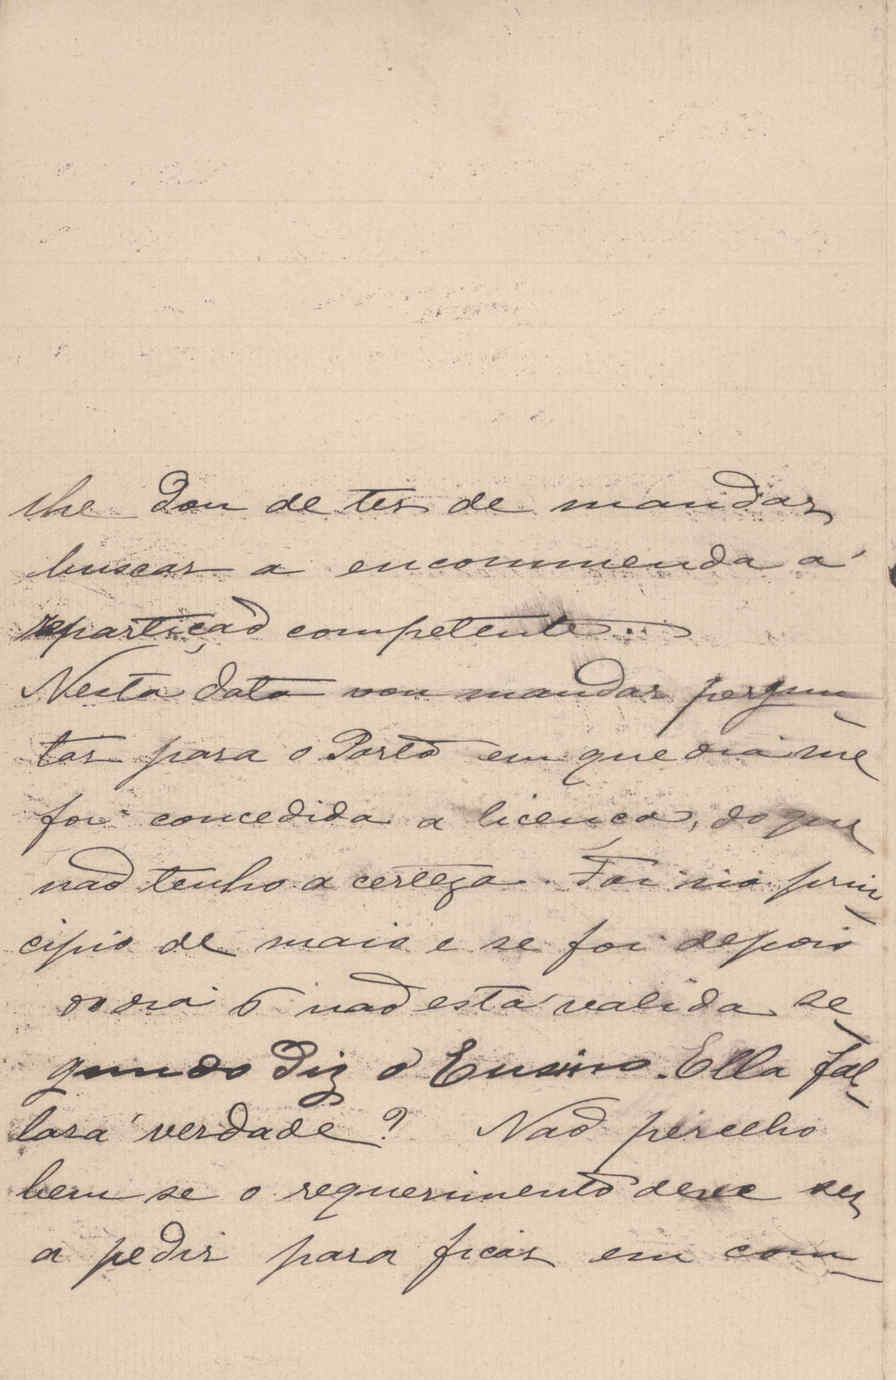 lhe dou de ter de mandar
buscar a encommenda á
repartição competente...
Nesta data vou mandar pergun-
tar para o Porto em que dia me
foi concedida a licença, do que
não tenho a certeza. Foi no prin-
cipio de maio e se foi depois
do dia 6 não está valida se-
gundo diz o Ensino. Ella fal-
lará verdade? Não percebo
bem se o requerimento deve ser
a pedir para ficar em com-